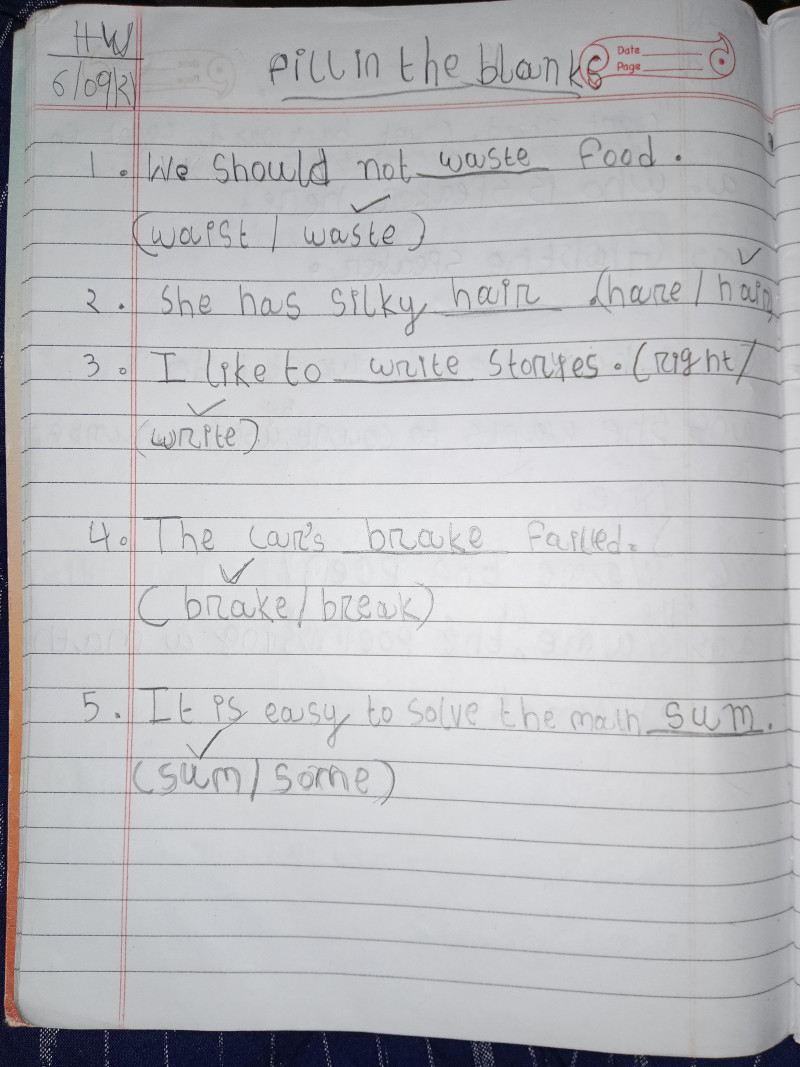 HW
6/09/21
Fill in the blanks
Date
Page
1. We should not waste food.
(waist / waste)
2. She has silky hair (hare / hair
3. I like to write stories. (right /
(write)
4. The car's brake failed.
(brake / break)
5. It is easy to solve the math sum.
(sum / some)